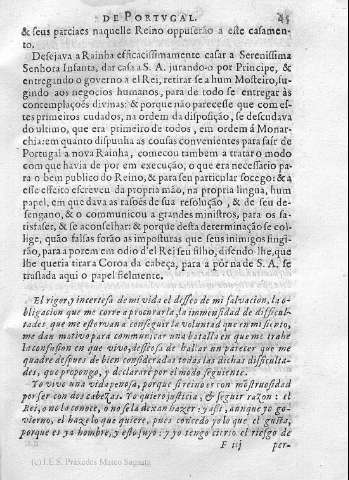 DE PORTVGAL. 45
& seus parciaes naquelle Reino oppuserão a este casamen-
to.
Desejava a Rainha efficacissimamente casar a Serenissima
Senhora Infanta, dar casa a S. A. jurando-o por Principe, &
entregando o governo a el Rei, retirar se a hum Mosteiro, fu-
gindo aos negocios humanos, para de todo se entregar às
contemplaçoẽs divinas: & porque não parecesse que com es-
tes primeiros cudados, na ordem da disposição, se descudava
do ultimo, que era primeiro de todos, em ordem á Monar-
chia: em quanto dispunha as cousas convenientes para fair de
Portugal a nova Rainha, começou tambem a tratar o modo
com que havia de por em execução, o que era necessario pa-
ra o bem publico do Reino, & para seu particular socego: & a
esse effeito escreveu da propria mão, na propria lingua, hum
papel, em que dava as rasoẽs de sua resolução, & de seu de-
sengano, & o communicou a grandes ministros, para os sa-
tisfaser, & se aconselhar: & porque desta determinação se col-
lige, quão falsas forão as imposturas que seus inimigos fingi-
rão, para a porem em odio d'el Rei seu filho, disendo-lhe, que
lhe queria tirar a Coroa da cabeça, para a pôr na de S. A. se
traslada aqui o papel fielmente.
El rigor, y incertesa de mi vida el desseo de mi salvacion, la o-
bligacion que me corre a procurarla, la immensidad de difficul-
tades que me estorvan a conseguir la voluntad que en mi siento,
me dan motivo para communicar una batalla en que me trahe
la confusion en que vivo, desseosa de hallar un parecer que me
quadre despues de bien consideradas todas las dichas difficulta-
des, que propongo, y declararè por el modo seguiente.
Yo vivo una vida penosa, porque si reino es con mostruosidad
por ser con dos cabeças. Yo quiero justicia, & seguir razon: el
Rei, o no la conoce, o no se la dexan hazer: y assi, aunque yo go-
vierno, el haze lo que quiere, pues concedo yo lo que el gusta,
porque es ya hombre, y esto suyo: y yo tengo cierto el riesgo de
F iij per-
(c) I.E.S. Práxedes Mateo Sagasta